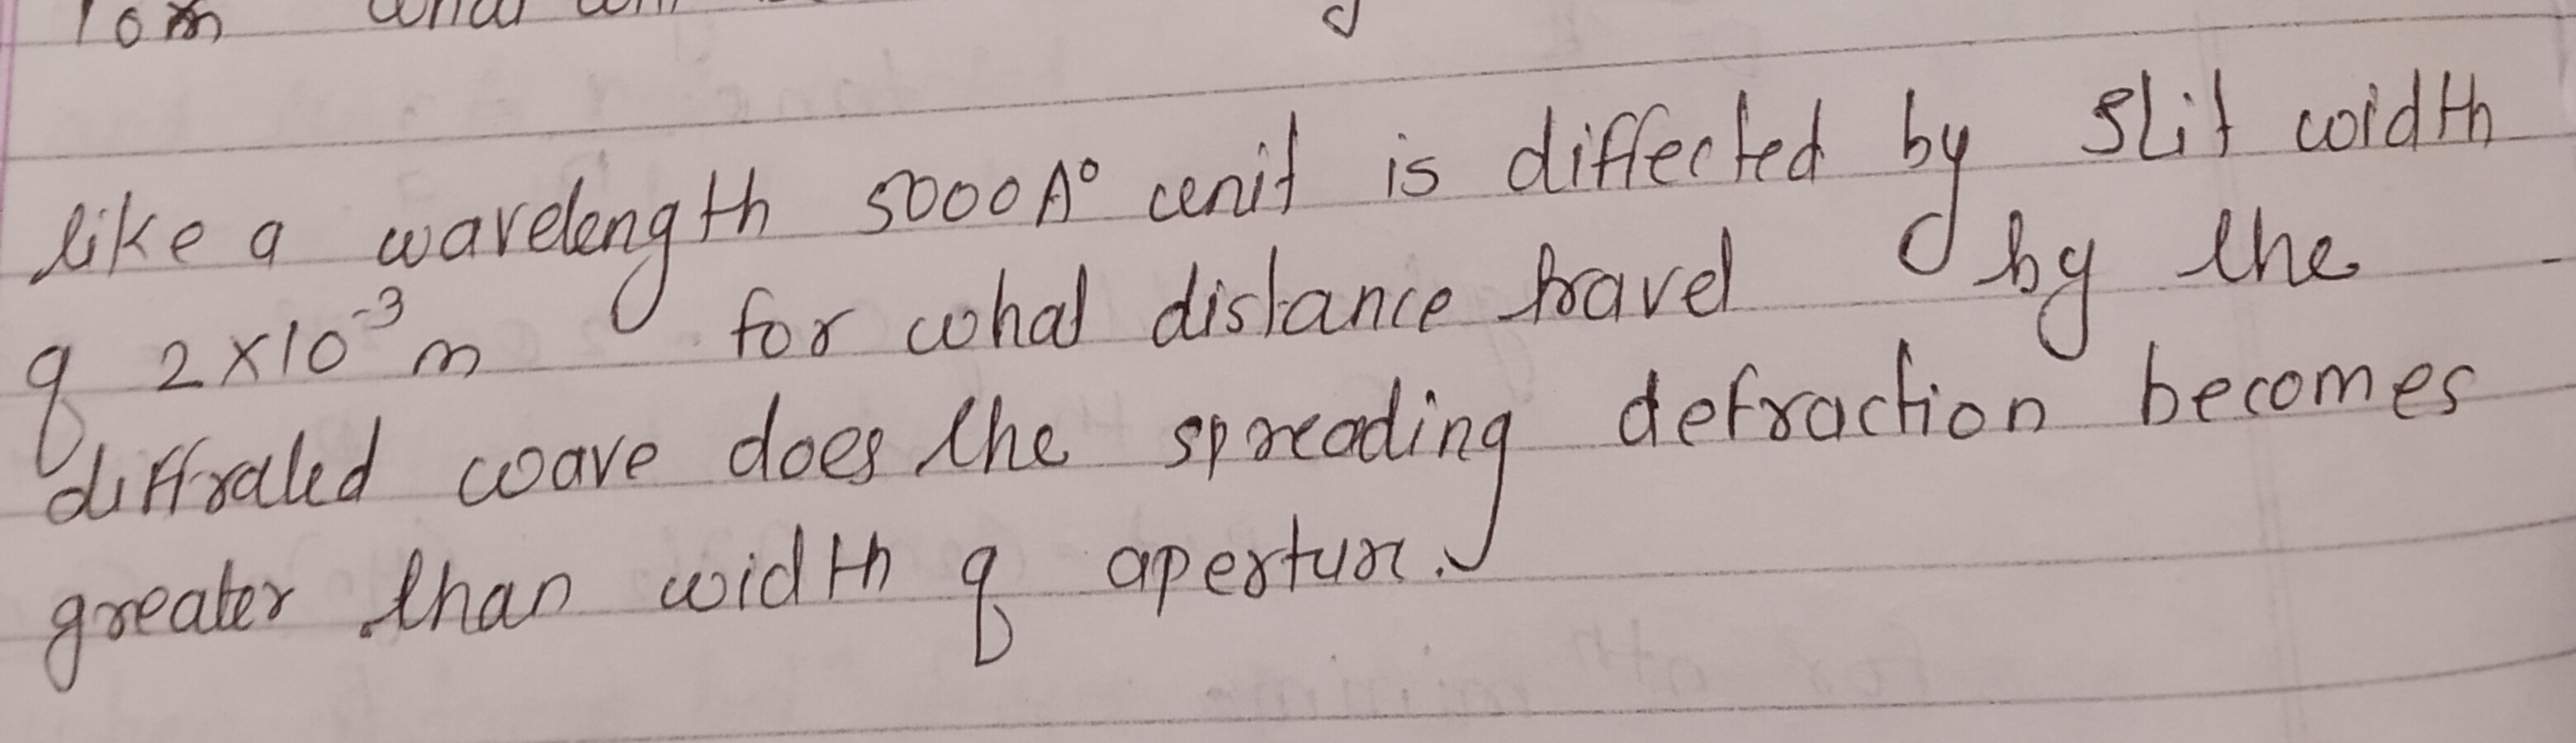 10m
like a wavelength 5000A° unit is diffected by slit width
of 2x10⁻³m for what distance travel by the
diffrated wave does the spreading defraction becomes
greater than width of aperture.